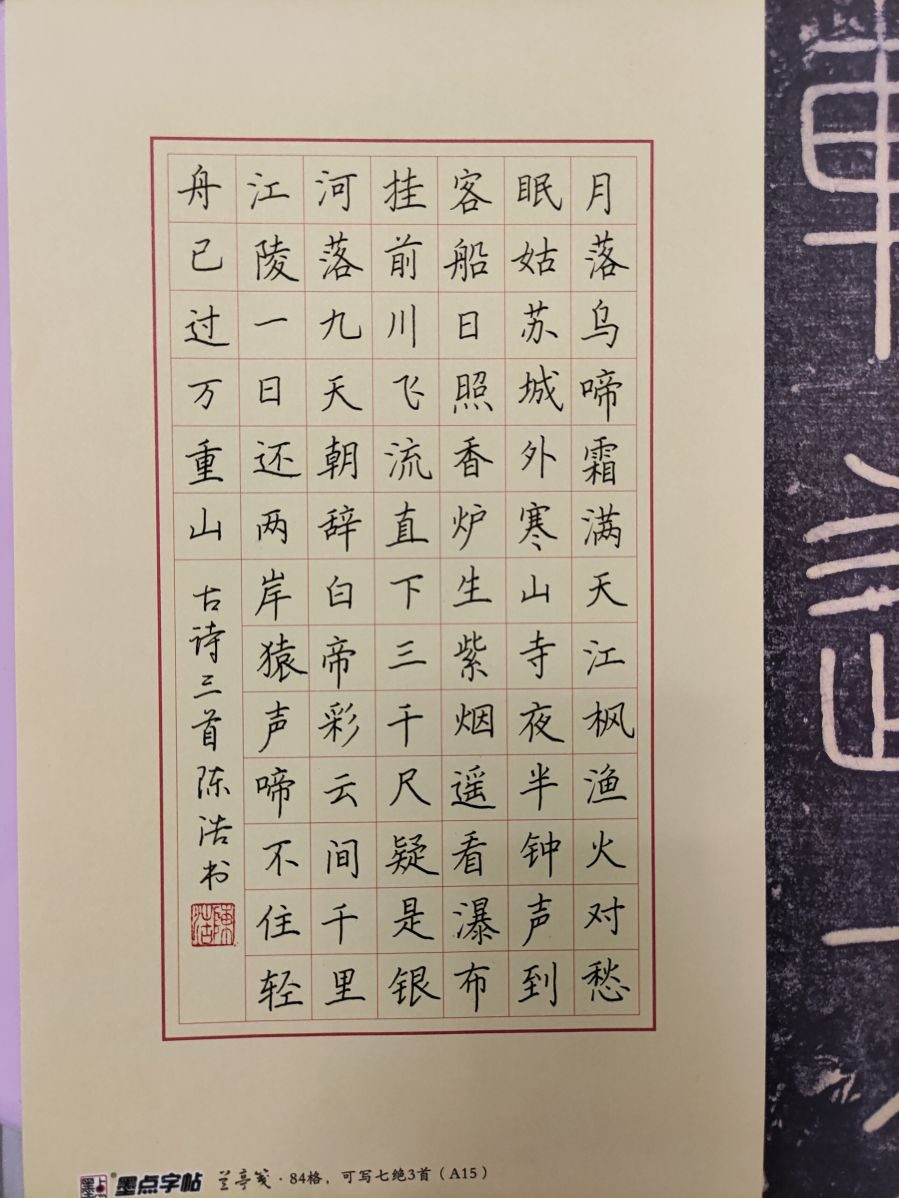 月落乌啼霜满天江枫渔火对愁
眠姑苏城外寒山寺夜半钟声到
客船日照香炉生紫烟遥看瀑布
挂前川飞流直下三千尺疑是银
河落九天朝辞白帝彩云间千里
江陵一日还两岸猿声啼不住轻
舟已过万重山
古诗三首陈浩书
陳浩
墨点字帖 兰亭笺·84格，可写七绝3首（A15）